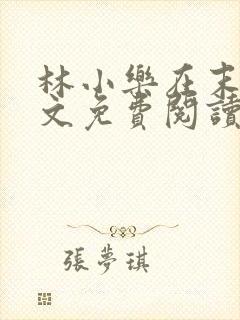 林小樂在末
文免費閱讀
張夢琪